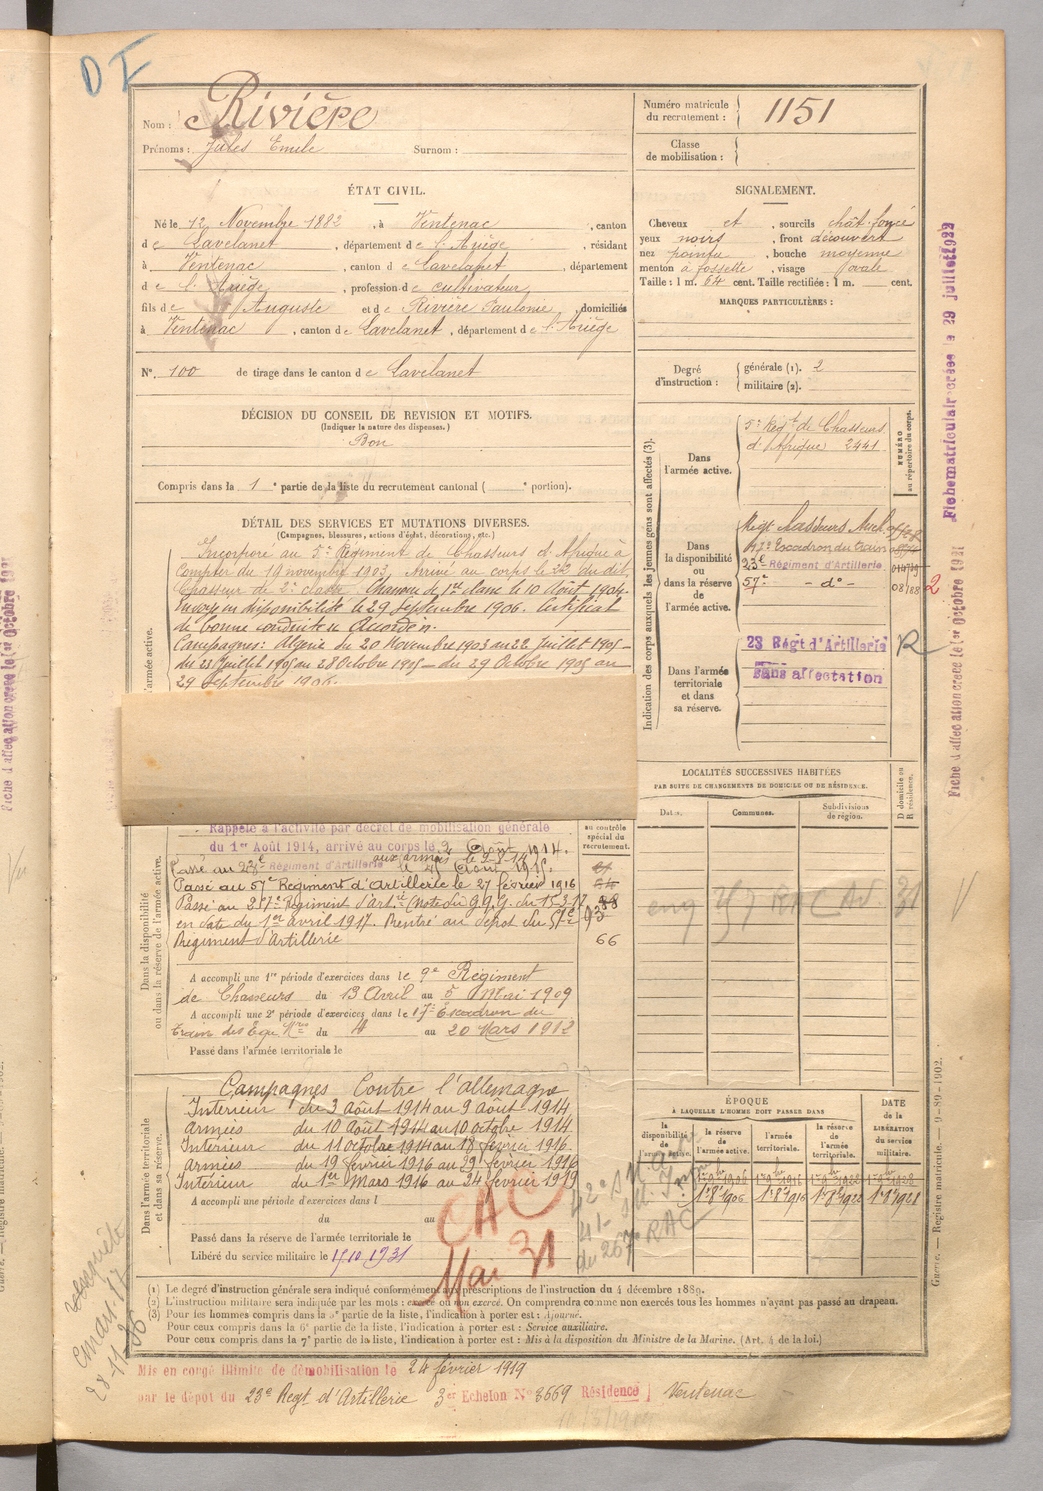 D I
Nom : Rivière
Prénoms : Jules Emile Surnom :
Numéro matricule du recrutement : 1151
Classe de mobilisation :
ÉTAT CIVIL.
Né le 12 Novembre 1882, à Ventenac, canton
de Lavelanet, département de l'Ariège, résidant
à Ventenac, canton de Lavelanet, département
de l'Ariège, profession de cultivateur
fils de Auguste et de Rivière Paulonie, domiciliés
à Ventenac, canton de Lavelanet, département de l'Ariège
N°. 100 de tirage dans le canton de Lavelanet
SIGNALEMENT.
Cheveux et, sourcils chât. foncé
yeux noirs, front découvert
nez pointu, bouche moyenne
menton à fossette, visage ovale
Taille : 1 m. 64 cent. Taille rectifiée : 1 m. cent.
MARQUES PARTICULIÈRES :
Degré d'instruction : générale (1). 2
militaire (2).
DÉCISION DU CONSEIL DE REVISION ET MOTIFS.
(Indiquer la nature des dispenses.)
Bon
Compris dans la 1e partie de la liste du recrutement cantonal ( e portion).
DÉTAIL DES SERVICES ET MUTATIONS DIVERSES.
(Campagnes, blessures, actions d'éclat, décorations, etc.)
Incorporé au 5e Régiment de Chasseurs d'Afrique à
compter du 19 novembre 1903, Arrivé au corps le 22 du dit,
Chasseur de 2e classe. Chasseur de 1re classe le 10 Août 1904.
Envoyé en disponibilité le 29 Septembre 1906. Certificat
de bonne conduite Accordé.
Campagnes : Algérie du 20 Novembre 1903 au 22 Juillet 1905 –
du 23 Juillet 1905 au 28 Octobre 1905 – du 29 Octobre 1905 au
29 Septembre 1906.
armée active.
Indication des corps auxquels les jeunes gens sont affectés (3).
NUMÉRO au répertoire du corps.
Dans l'armée active.
5e Régt de Chasseurs
d'Afrique 2441
Dans la disponibilité ou dans la réserve de l'armée active.
17e Escadron du train
23e Régiment d'Artillerie
57e – do –
2
Dans l'armée territoriale et dans sa réserve.
23 Régt d'Artillerie R
Sans affectation
Fiche matriculair créée le 29 juillet 1922
Fiche d'affectation créée le 1er octobre 1921
LOCALITÉS SUCCESSIVES HABITÉES
PAR SUITE DE CHANGEMENTS DE DOMICILE OU DE RÉSIDENCE.
Dates. Communes. Subdivisions de région. D domicile ou R résidence.
au contrôle spécial du recrutement.
Rappelé à l'activité par décret de mobilisation générale
du 1er Août 1914, arrivé au corps le 3 Août 1914.
aux armées le 9-8-14
Passé au 23e Régiment d'Artillerie
Passé au 57e Régiment d'Artillerie le 27 février 1916
Passé au 257e Régiment d'Artie (Note du G.Q.G. du 15.3.17
en date du 1er avril 1917. Rentré au dépôt du 57e
Régiment d'Artillerie
93
66
Dans la disponibilité ou dans la réserve de l'armée active.
A accompli une 1re période d'exercices dans le 9e Régiment
de Chasseurs du 13 Avril au 5 Mai 1909
A accompli une 2e période d'exercices dans le 17e Escadron du
train des Equ. du 4 au 20 Mars 1912
Passé dans l'armée territoriale le
Dans l'armée territoriale et dans sa réserve.
Campagnes Contre l'allemagne
Intérieur du 3 Août 1914 au 9 Août 1914
Armées du 10 Août 1914 au 10 octobre 1914
Intérieur du 11 octobre 1914 au 18 février 1916
Armées du 19 février 1916 au 29 février 1916
Intérieur du 1er Mars 1916 au 24 février 1919
A accompli une période d'exercices dans l
du au
Passé dans la réserve de l'armée territoriale le
Libéré du service militaire le 15.10.1931
CAC
Mai 31
ÉPOQUE
À LAQUELLE L'HOMME DOIT PASSER DANS
la disponibilité de l'armée active. la réserve de l'armée active. l'armée territoriale. la réserve de l'armée territoriale.
DATE de la LIBÉRATION du service militaire.
1er 8bre 1906 1er 8bre 1916 1er 8bre 1922 1er 8bre 1928
(1) Le degré d'instruction générale sera indiqué conformément aux prescriptions de l'instruction du 4 décembre 1889.
(2) L'instruction militaire sera indiquée par les mots : exercé ou non exercé. On comprendra comme non exercés tous les hommes n'ayant pas passé au drapeau.
(3) Pour les hommes compris dans la 5e partie de la liste, l'indication à porter est : Ajourné.
Pour ceux compris dans la 6e partie de la liste, l'indication à porter est : Service auxiliaire.
Pour ceux compris dans la 7e partie de la liste, l'indication à porter est : Mis à la disposition du Ministre de la Marine. (Art. 4 de la loi.)
Guerre. — Registre matricule. — 9-89-1902.
Mis en congé illimité de démobilisation le 24 février 1919
par le dépôt du 23e Régt d'Artillerie 3er Echelon N° 3669 Résidence Ventenac